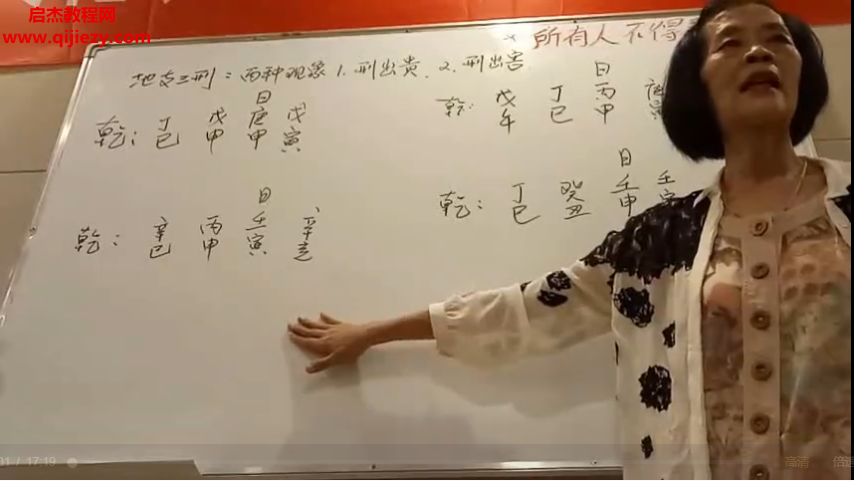 启杰教程网
www.qijiezy.com
所有人不得
地支三刑：两种现象 1.刑出贵. 2.刑出害
日
乾：丁 戊 庚 戊
巳 申 申 寅
日
乾：戊 丁 丙 庚
午 巳 申 寅
日
乾：辛 丙 壬 辛
巳 申 寅 亥
日
乾：丁 癸 壬 壬
巳 丑 申 寅
01 / 17:19
高清
倍速